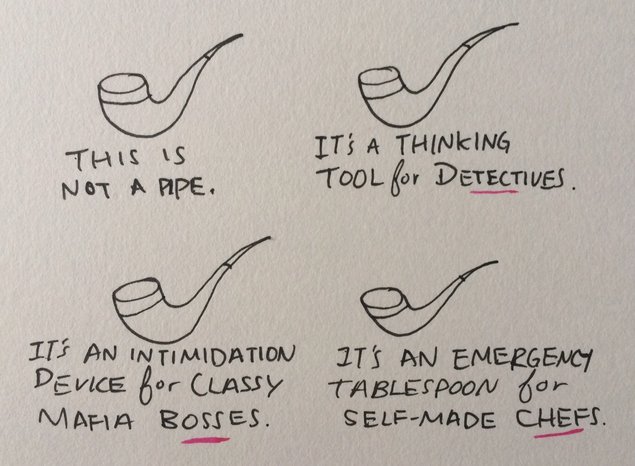 THIS IS
NOT A PIPE.
IT'S A THINKING
TOOL for DETECTIVES.
IT'S AN INTIMIDATION
DEVICE for CLASSY
MAFIA BOSSES.
IT'S AN EMERGENCY
TABLESPOON for
SELF-MADE CHEFS.